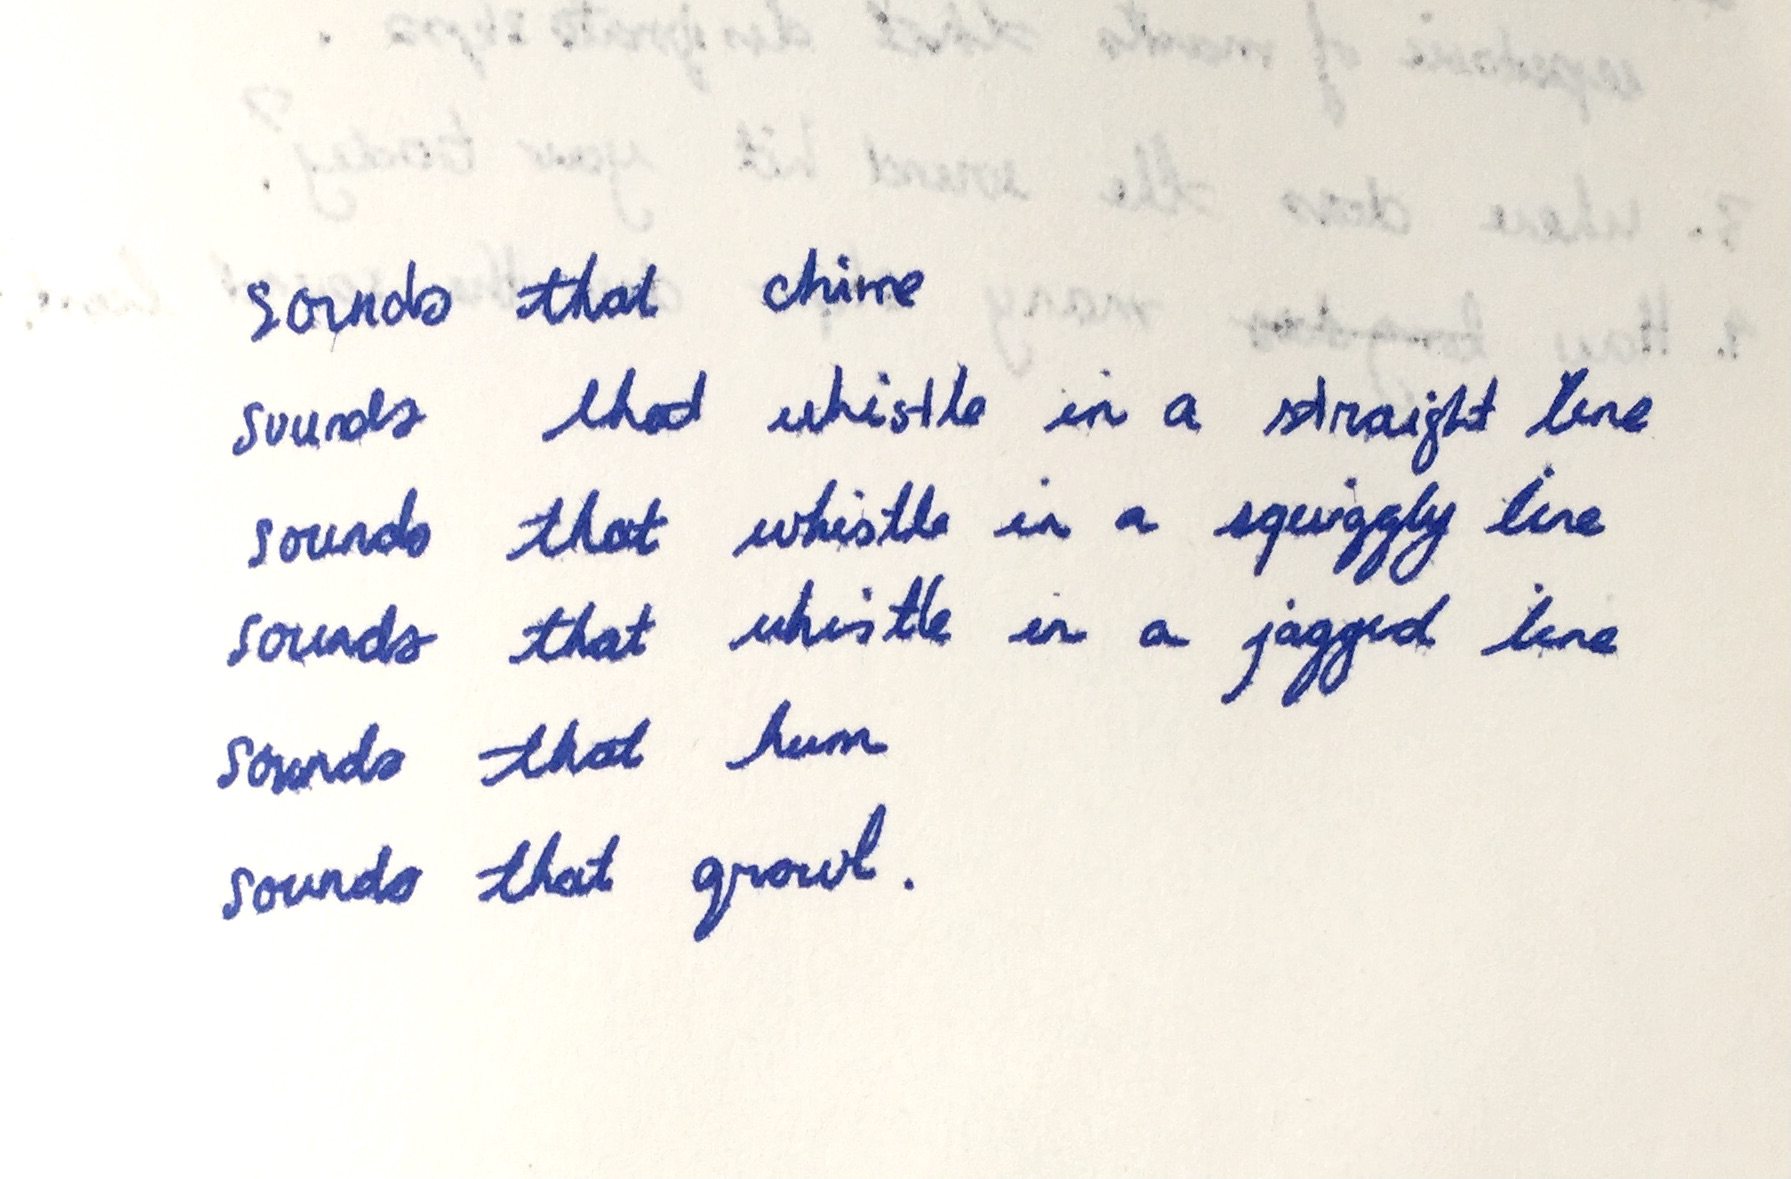 sounds that chime
sounds that whistle in a straight line
sounds that whistle in a squiggly line
sounds that whistle in a jagged line
sounds that hum
sounds that growl.